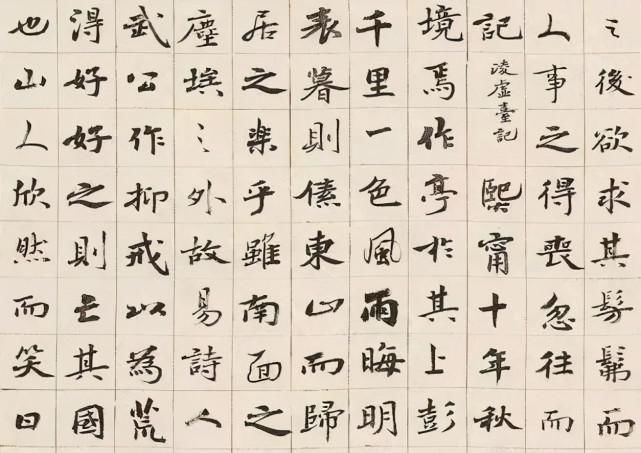 之後欲求其髣髴而
人事之得喪忽往而
記 凌虛臺記 熙寧十年秋
境焉作亭於其上彭
千里一色風雨晦明
表暮則傃東山而歸
居之樂乎雖南面之
塵埃之外故易詩人
武公作抑戒以為荒
得好好之則亡其國
也山人欣然而笑曰